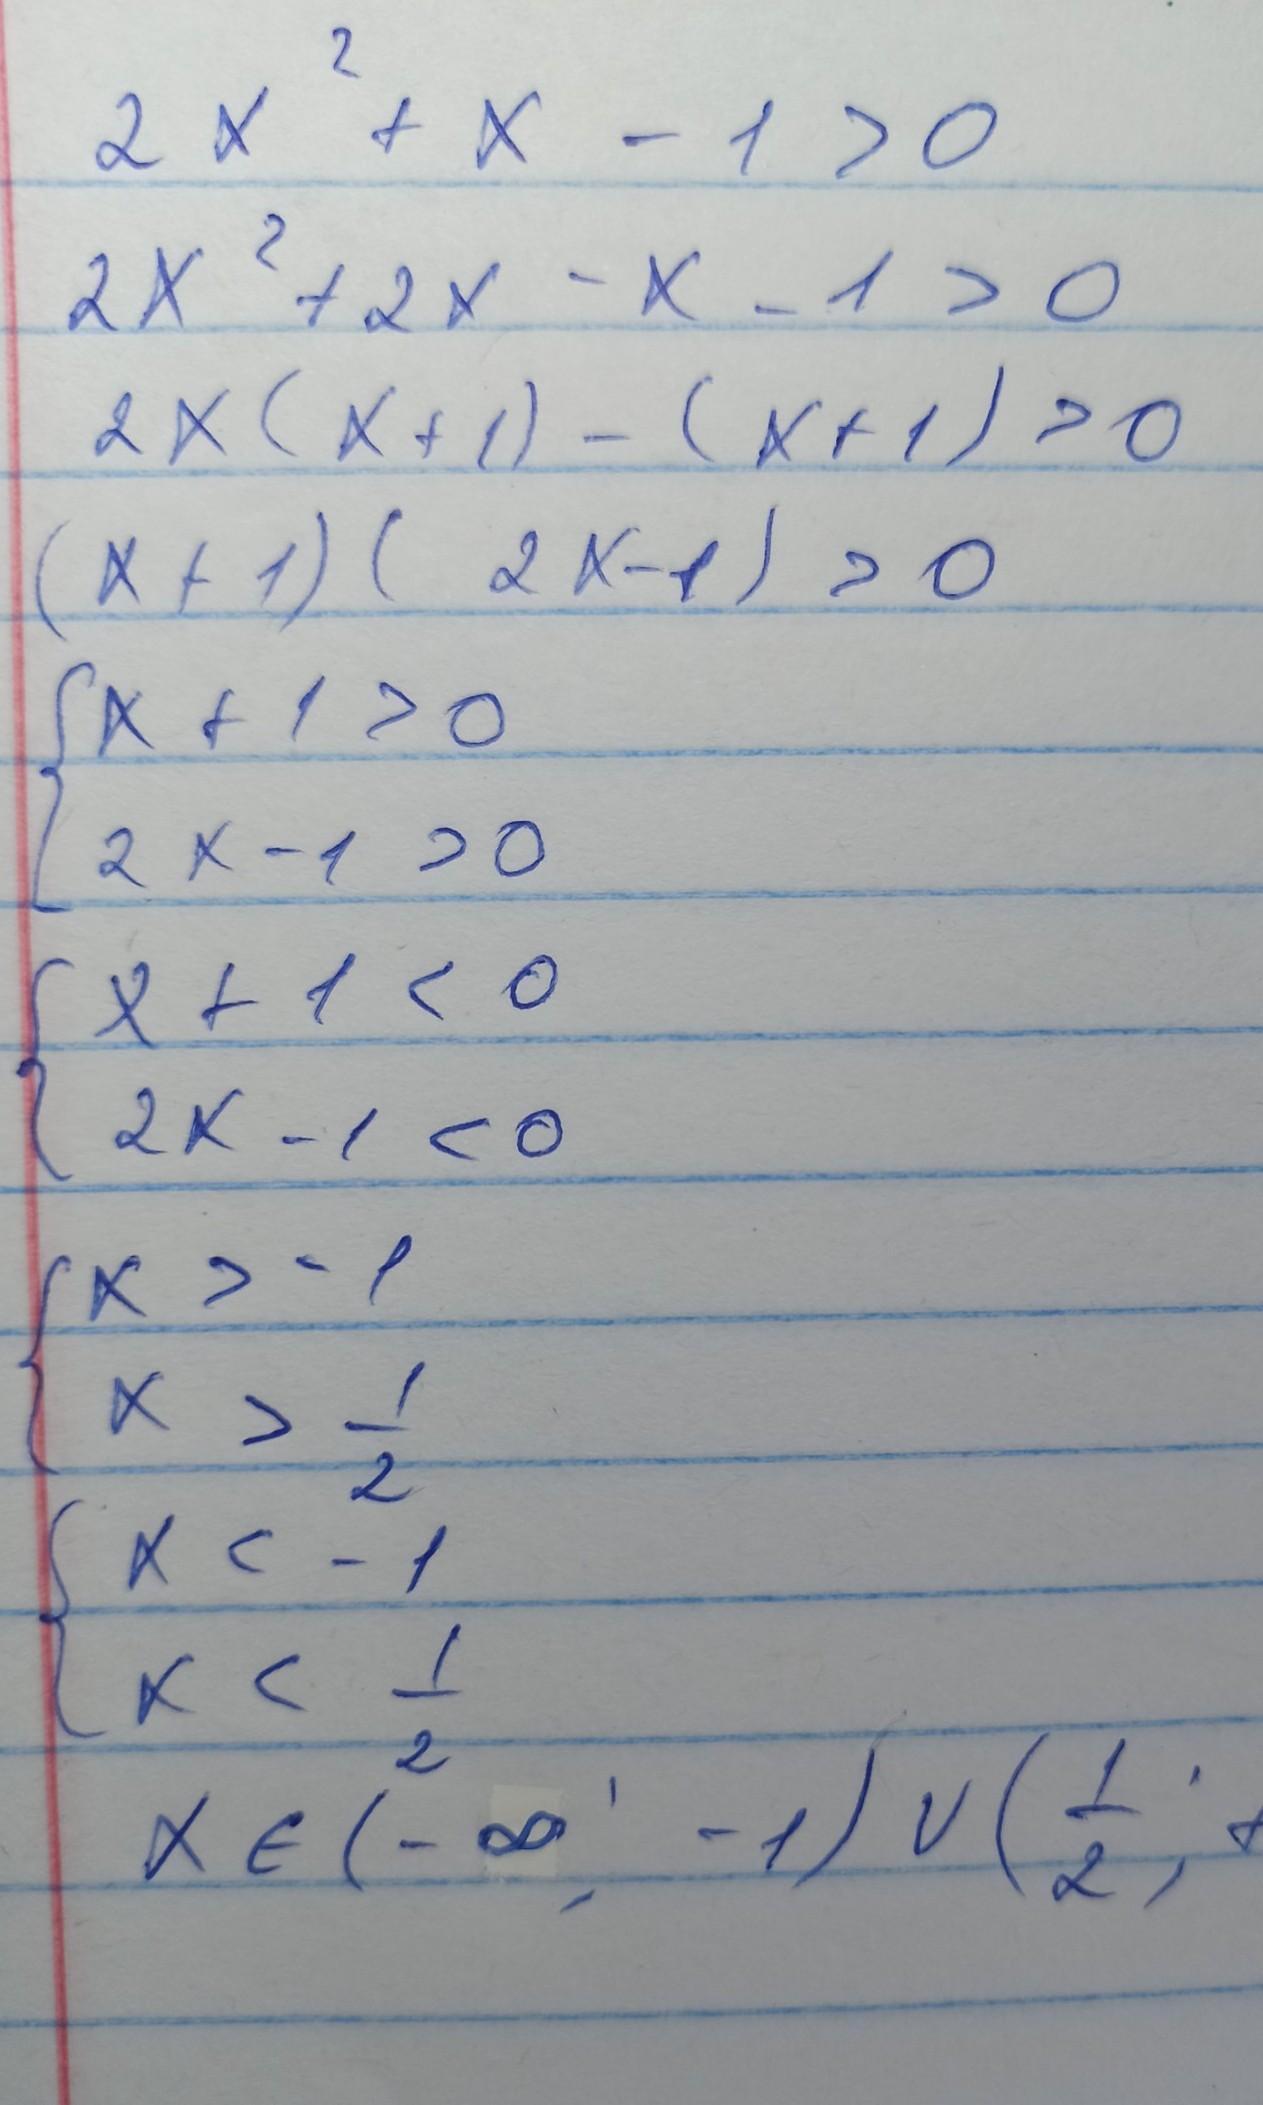 2x² + x - 1 > 0
2x² + 2x - x - 1 > 0
2x(x + 1) - (x + 1) > 0
(x + 1)(2x - 1) > 0
{x + 1 > 0
2x - 1 > 0
{x + 1 < 0
2x - 1 < 0
{x > -1
x > 1/2
{x < -1
x < 1/2
x ∈ (-∞; -1) ∪ (1/2; +